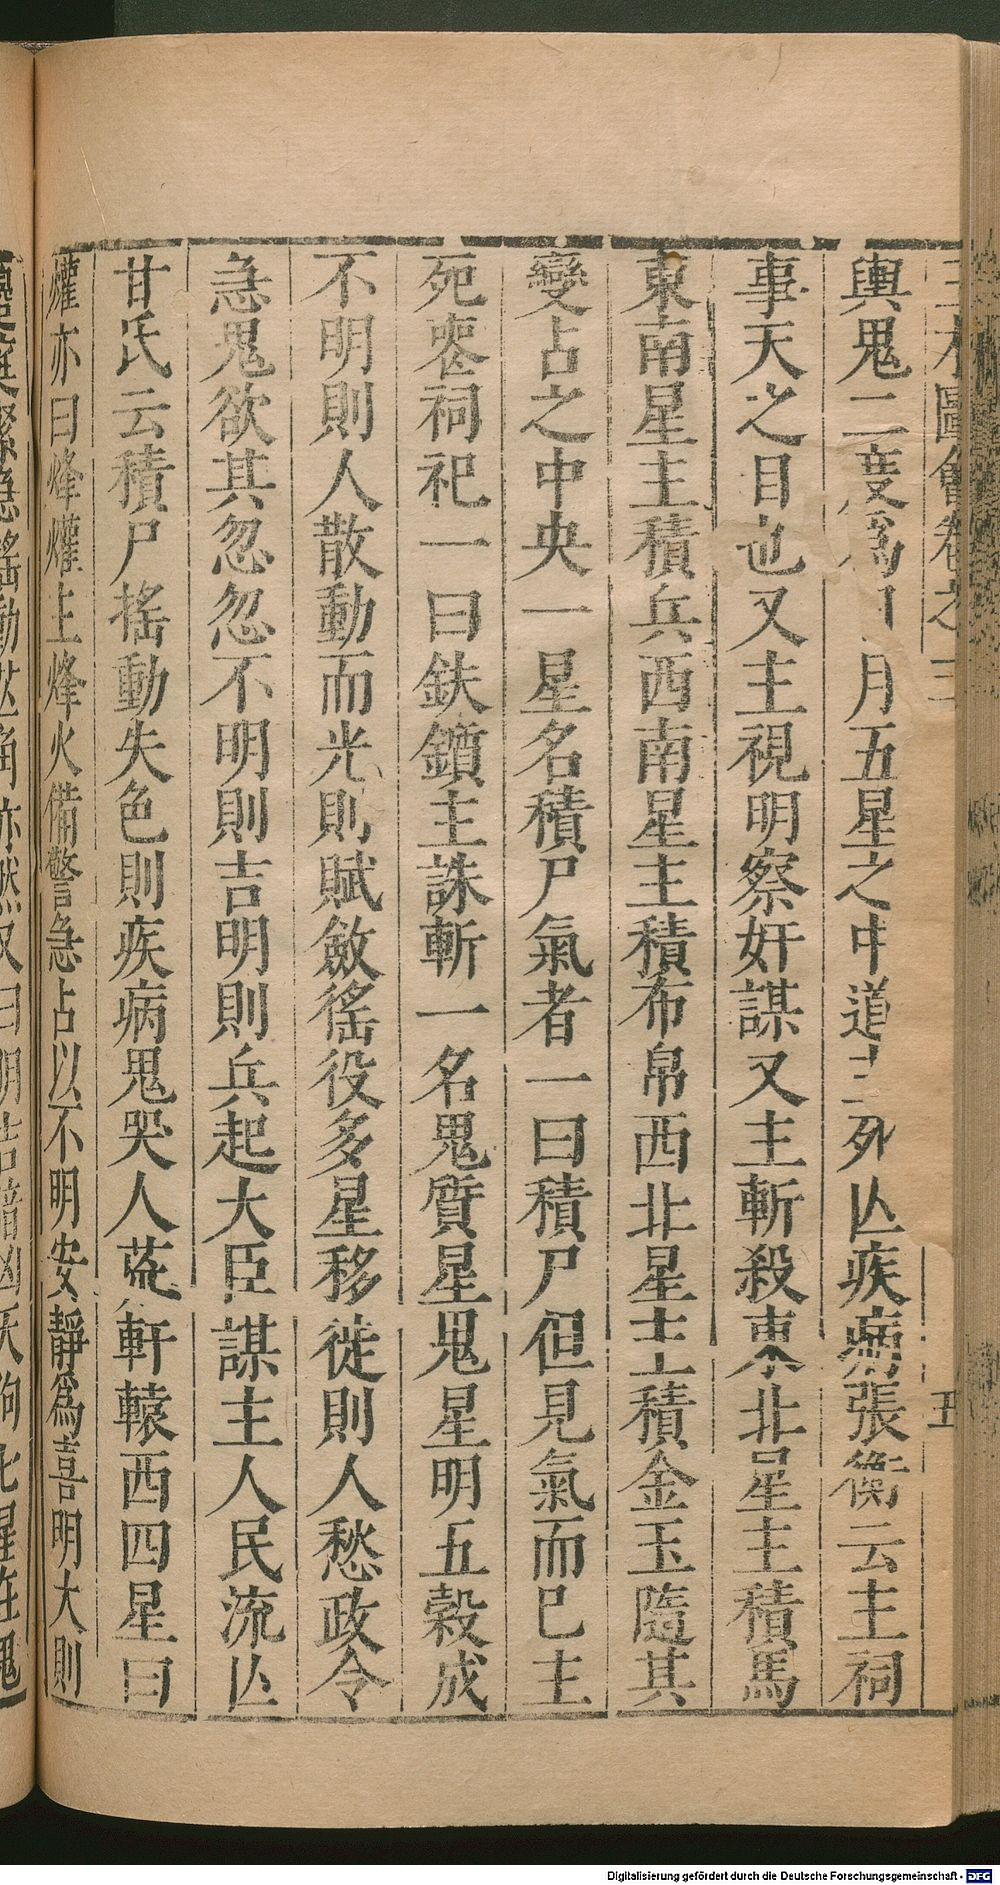 三才圖會卷之三
五
輿鬼二度爲日月五星之中道主死亾疾病張衡云主祠
事天之目也又主視明察奸謀又主斬殺東北星主積馬
東南星主積兵西南星主積布帛西北星主積金玉隨其
變占之中央一星名積尸氣者一曰積尸但見氣而已主
死喪祠祀一曰鈇鑕主誅斬一名鬼質星鬼星明五穀成
不明則人散動而光則賦斂徭役多星移徙則人愁政令
急鬼欲其忽忽不明則吉明則兵起大臣謀主人民流亾
甘氏云積尸搖動失色則疾病鬼哭人荒軒轅西四星曰
爟亦曰烽爟主烽火備警急占以不明安靜爲喜明大則
邊亭警急搖動芒角亦然又曰明吉暗凶天狗七星在鬼
Digitalisierung gefördert durch die Deutsche Forschungsgemeinschaft - DFG